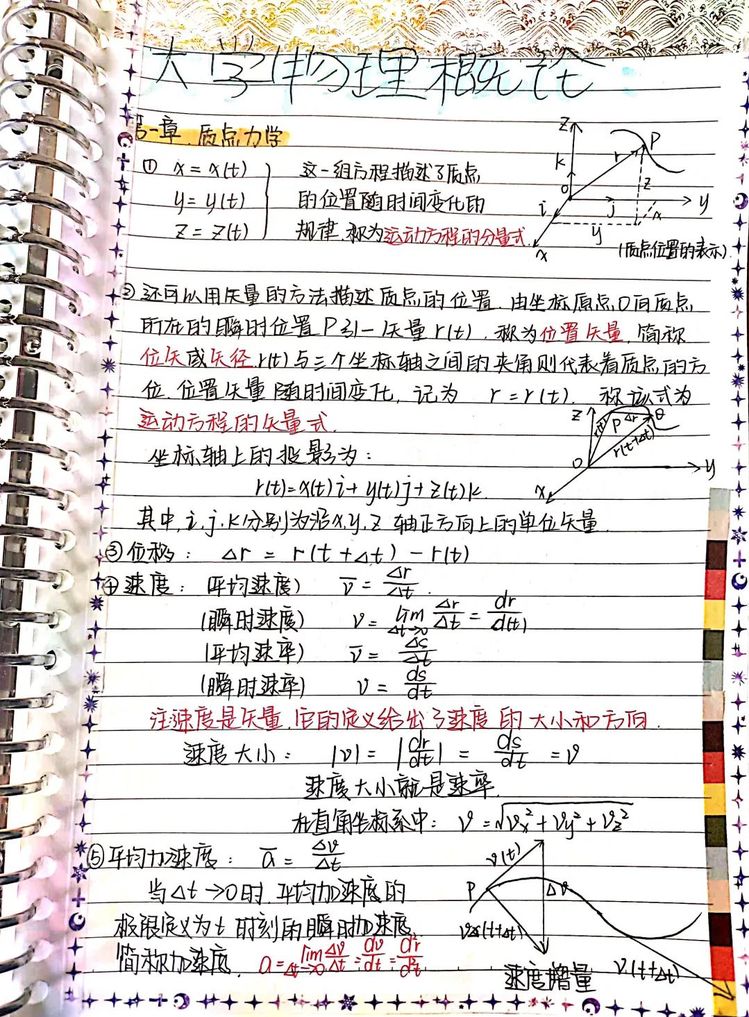 大学物理概论
第一章.质点力学
① x = x(t) 这一组方程描述了质点
y = y(t) 的位置随时间变化的
z = z(t) 规律.称为运动方程的分量式.
z
P
r
k
z
o
i
j
y
x
y
x
(质点位置的表示)
②还可以用矢量的方法描述质点的位置.由坐标原点O向质点
所在的瞬时位置P引一矢量r(t).称为位置矢量,简称
位矢或矢径.r(t)与三个坐标轴之间的夹角则代表着质点的方
位.位置矢量随时间变化,记为 r = r(t). 称该式为
运动方程的矢量式.
z
P
Δr
Q
r(t)
r(t+Δt)
O
y
x
坐标轴上的投影为:
r(t)=x(t)i+y(t)j+z(t)k.
其中,i.j.k分别为沿x.y.z 轴正方向上的单位矢量.
③位移: Δr = r(t+Δt) - r(t)
④速度: (平均速度) v̅ = Δr/Δt
(瞬时速度) v = lim Δt→0 Δr/Δt = dr/d(t)
(平均速率) v̅ = Δs/Δt
(瞬时速率) v = ds/dt
注:速度是矢量,它的定义给出了速度的大小和方向.
速度大小: |v| = |dr/dt| = ds/dt = v
速度大小就是速率.
在直角坐标系中: v = √(vx² + vy² + vz²)
⑤平均加速度: a̅ = Δv/Δt
当Δt→0时,平均加速度的
极限定义为t时刻的瞬时加速度,
简称加速度. a = lim Δt→0 Δv/Δt = dv/dt = d²r/d²t
v(t)
P
Δv
v(t+Δt)
速度增量
v(t+Δt)